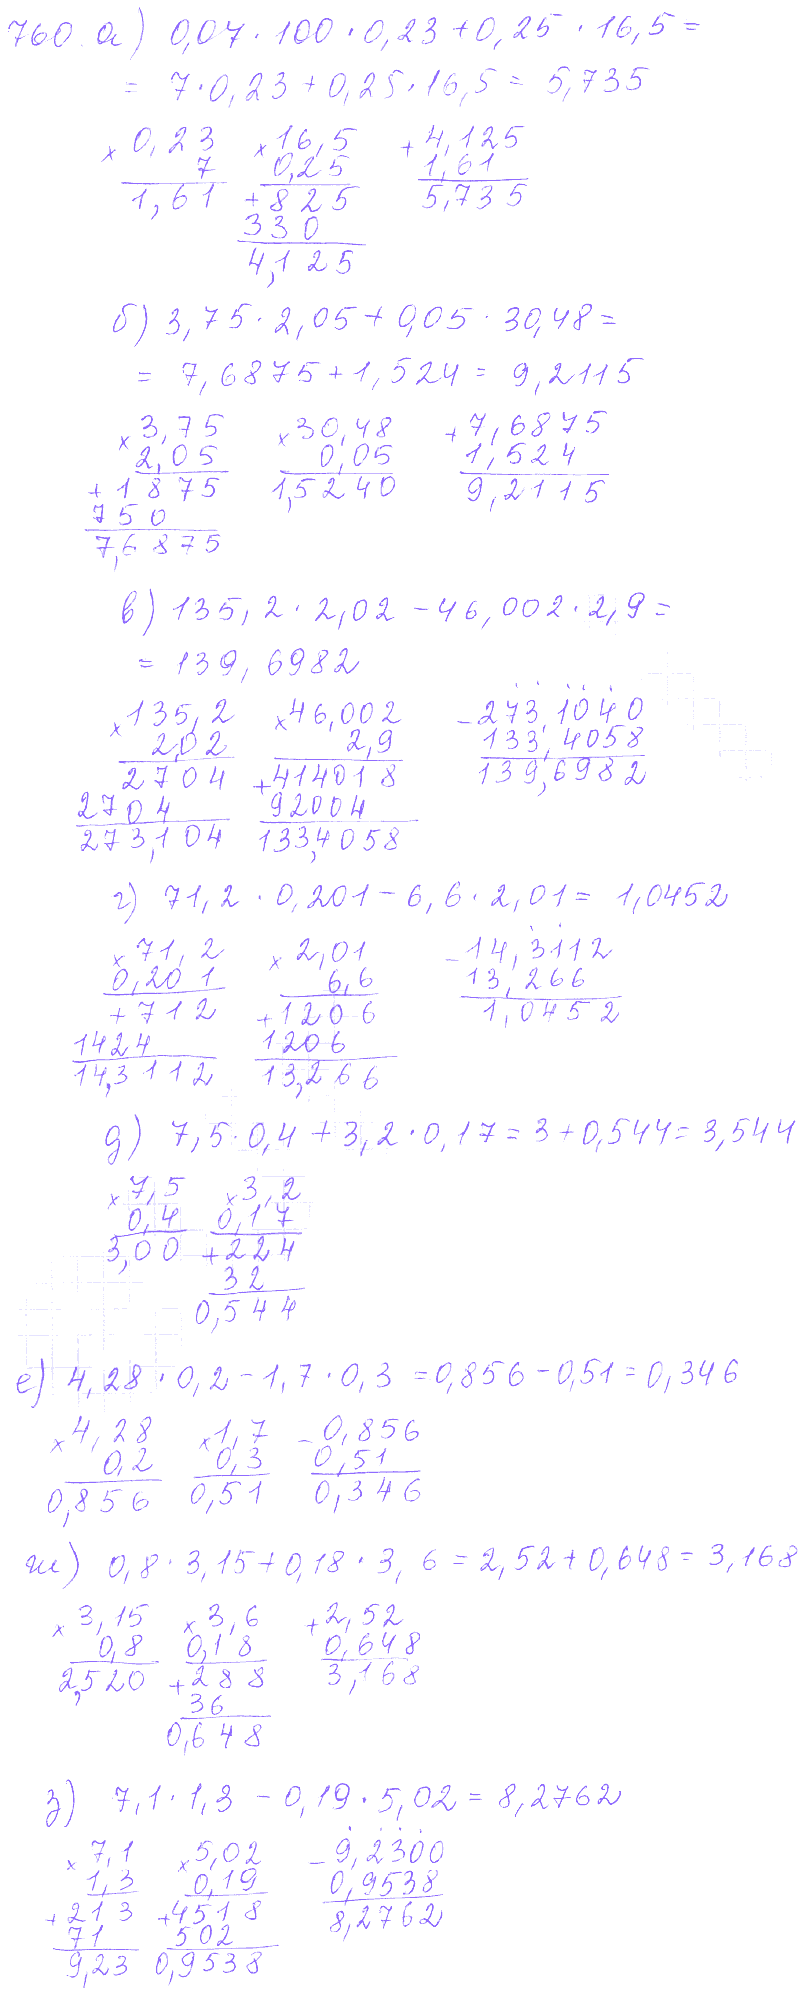 760. а) 0,07 · 100 · 0,23 + 0,25 · 16,5 =
= 7 · 0,23 + 0,25 · 16,5 = 5,735
× 0,23 × 16,5 + 4,125
7 0,25 1,61
1,61 + 825 5,735
330
4,125
б) 3,75 · 2,05 + 0,05 · 30,48 =
= 7,6875 + 1,524 = 9,2115
× 3,75 × 30,48 + 7,6875
2,05 0,05 1,524
+ 1875 1,5240 9,2115
750
7,6875
в) 135,2 · 2,02 - 46,002 · 2,9 =
= 139,6982
× 135,2 × 46,002 - 273,1040
2,02 2,9 133,4058
2704 + 414018 139,6982
2704 92004
273,104 133,4058
г) 71,2 · 0,201 - 6,6 · 2,01 = 1,0452
× 71,2 × 2,01 - 14,3112
0,201 6,6 13,266
+ 712 + 1206 1,0452
1424 1206
14,3112 13,266
д) 7,5 · 0,4 + 3,2 · 0,17 = 3 + 0,544 = 3,544
× 7,5 × 3,2
0,4 0,17
3,00 + 224
32
0,544
е) 4,28 · 0,2 - 1,7 · 0,3 = 0,856 - 0,51 = 0,346
× 4,28 × 1,7 - 0,856
0,2 0,3 0,51
0,856 0,51 0,346
ж) 0,8 · 3,15 + 0,18 · 3,6 = 2,52 + 0,648 = 3,168
× 3,15 × 3,6 + 2,52
0,8 0,18 0,648
2,520 + 288 3,168
36
0,648
з) 7,1 · 1,3 - 0,19 · 5,02 = 8,2762
× 7,1 × 5,02 - 9,2300
1,3 0,19 0,9538
+ 213 + 4518 8,2762
71 502
9,23 0,9538